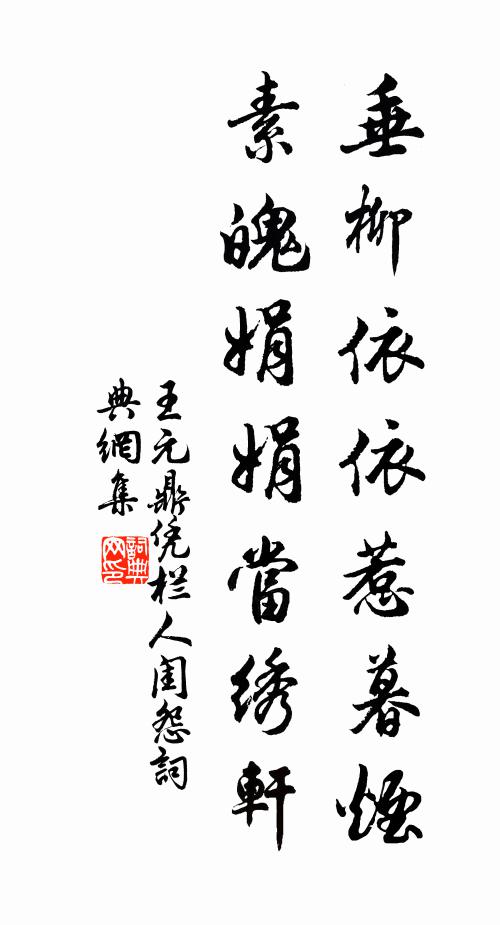 垂柳依依惹暮煙
素魄娟娟當绣軒
王元鼎凭栏人闺怨詞
典網集
詞典网印